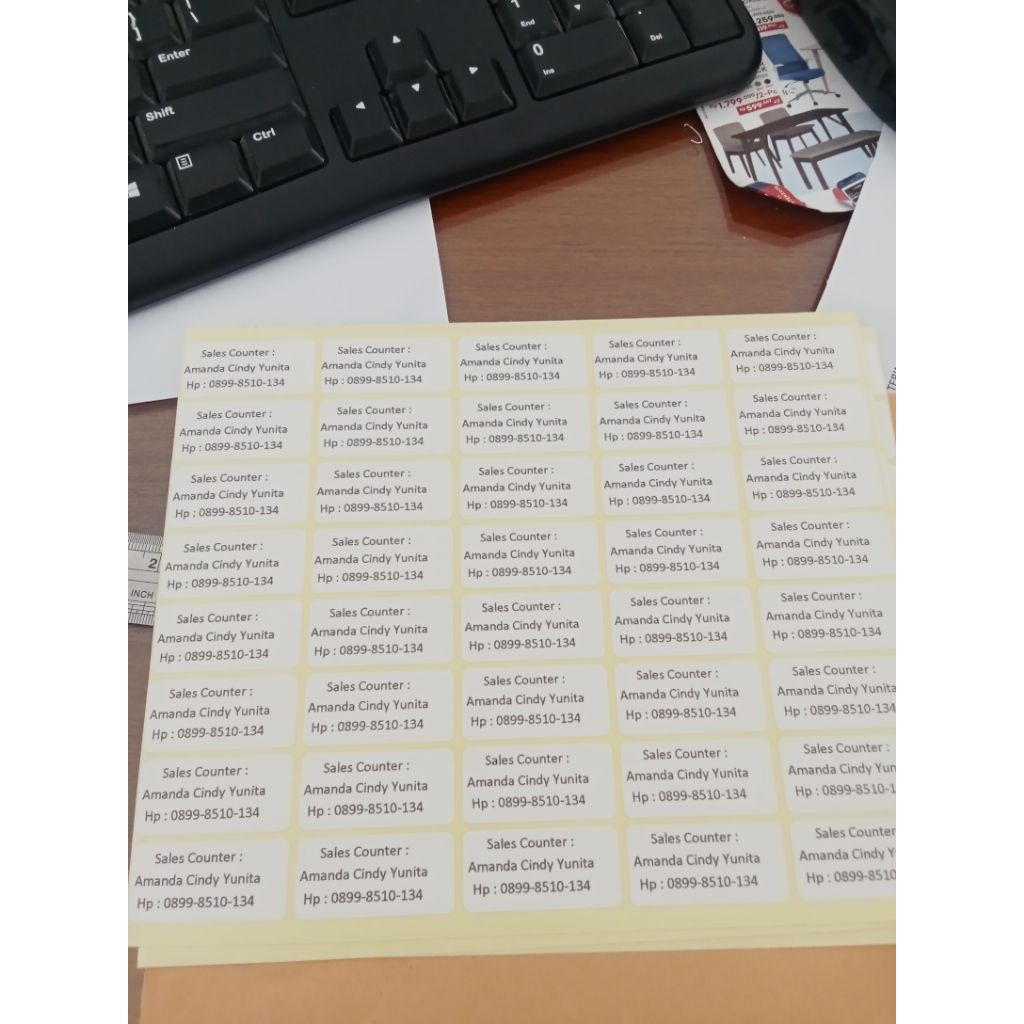 Enter
Shift
Ctrl
1
End
0
Ins
.
Del
Sales Counter :
Amanda Cindy Yunita
Hp : 0899-8510-134
Sales Counter :
Amanda Cindy Yunita
Hp : 0899-8510-134
Sales Counter :
Amanda Cindy Yunita
Hp : 0899-8510-134
Sales Counter :
Amanda Cindy Yunita
Hp : 0899-8510-134
Sales Counter :
Amanda Cindy Yunita
Hp : 0899-8510-134
Sales Counter :
Amanda Cindy Yunita
Hp : 0899-8510-134
Sales Counter :
Amanda Cindy Yunita
Hp : 0899-8510-134
Sales Counter :
Amanda Cindy Yunita
Hp : 0899-8510-134
Sales Counter :
Amanda Cindy Yunita
Hp : 0899-8510-134
Sales Counter :
Amanda Cindy Yunita
Hp : 0899-8510-134
Sales Counter :
Amanda Cindy Yunita
Hp : 0899-8510-134
Sales Counter :
Amanda Cindy Yunita
Hp : 0899-8510-134
Sales Counter :
Amanda Cindy Yunita
Hp : 0899-8510-134
Sales Counter :
Amanda Cindy Yunita
Hp : 0899-8510-134
Sales Counter :
Amanda Cindy Yunita
Hp : 0899-8510-134
Sales Counter :
Amanda Cindy Yunita
Hp : 0899-8510-134
Sales Counter :
Amanda Cindy Yunita
Hp : 0899-8510-134
Sales Counter :
Amanda Cindy Yunita
Hp : 0899-8510-134
Sales Counter :
Amanda Cindy Yunita
Hp : 0899-8510-134
Sales Counter :
Amanda Cindy Yunita
Hp : 0899-8510-134
Sales Counter :
Amanda Cindy Yunita
Hp : 0899-8510-134
Sales Counter :
Amanda Cindy Yunita
Hp : 0899-8510-134
Sales Counter :
Amanda Cindy Yunita
Hp : 0899-8510-134
Sales Counter :
Amanda Cindy Yunita
Hp : 0899-8510-134
Sales Counter :
Amanda Cindy Yunita
Hp : 0899-8510-134
Sales Counter :
Amanda Cindy Yunita
Hp : 0899-8510-134
Sales Counter :
Amanda Cindy Yunita
Hp : 0899-8510-134
Sales Counter :
Amanda Cindy Yunita
Hp : 0899-8510-134
Sales Counter :
Amanda Cindy Yunita
Hp : 0899-8510-134
Sales Counter :
Amanda Cindy Yunita
Hp : 0899-8510-134
Sales Counter :
Amanda Cindy Yunita
Hp : 0899-8510-134
Sales Counter :
Amanda Cindy Yunita
Hp : 0899-8510-134
Sales Counter :
Amanda Cindy Yunita
Hp : 0899-8510-134
Sales Counter :
Amanda Cindy Yunita
Hp : 0899-8510-134
Sales Counter :
Amanda Cindy Yun
Hp : 0899-8510-1
Sales Counter :
Amanda Cindy Yunita
Hp : 0899-8510-134
Sales Counter :
Amanda Cindy Yunita
Hp : 0899-8510-134
Sales Counter :
Amanda Cindy Yunita
Hp : 0899-8510-134
Sales Counter :
Amanda Cindy Yunita
Hp : 0899-8510-134
Sales Counter
Amanda Cindy Y
Hp : 0899-8510
2
INCH